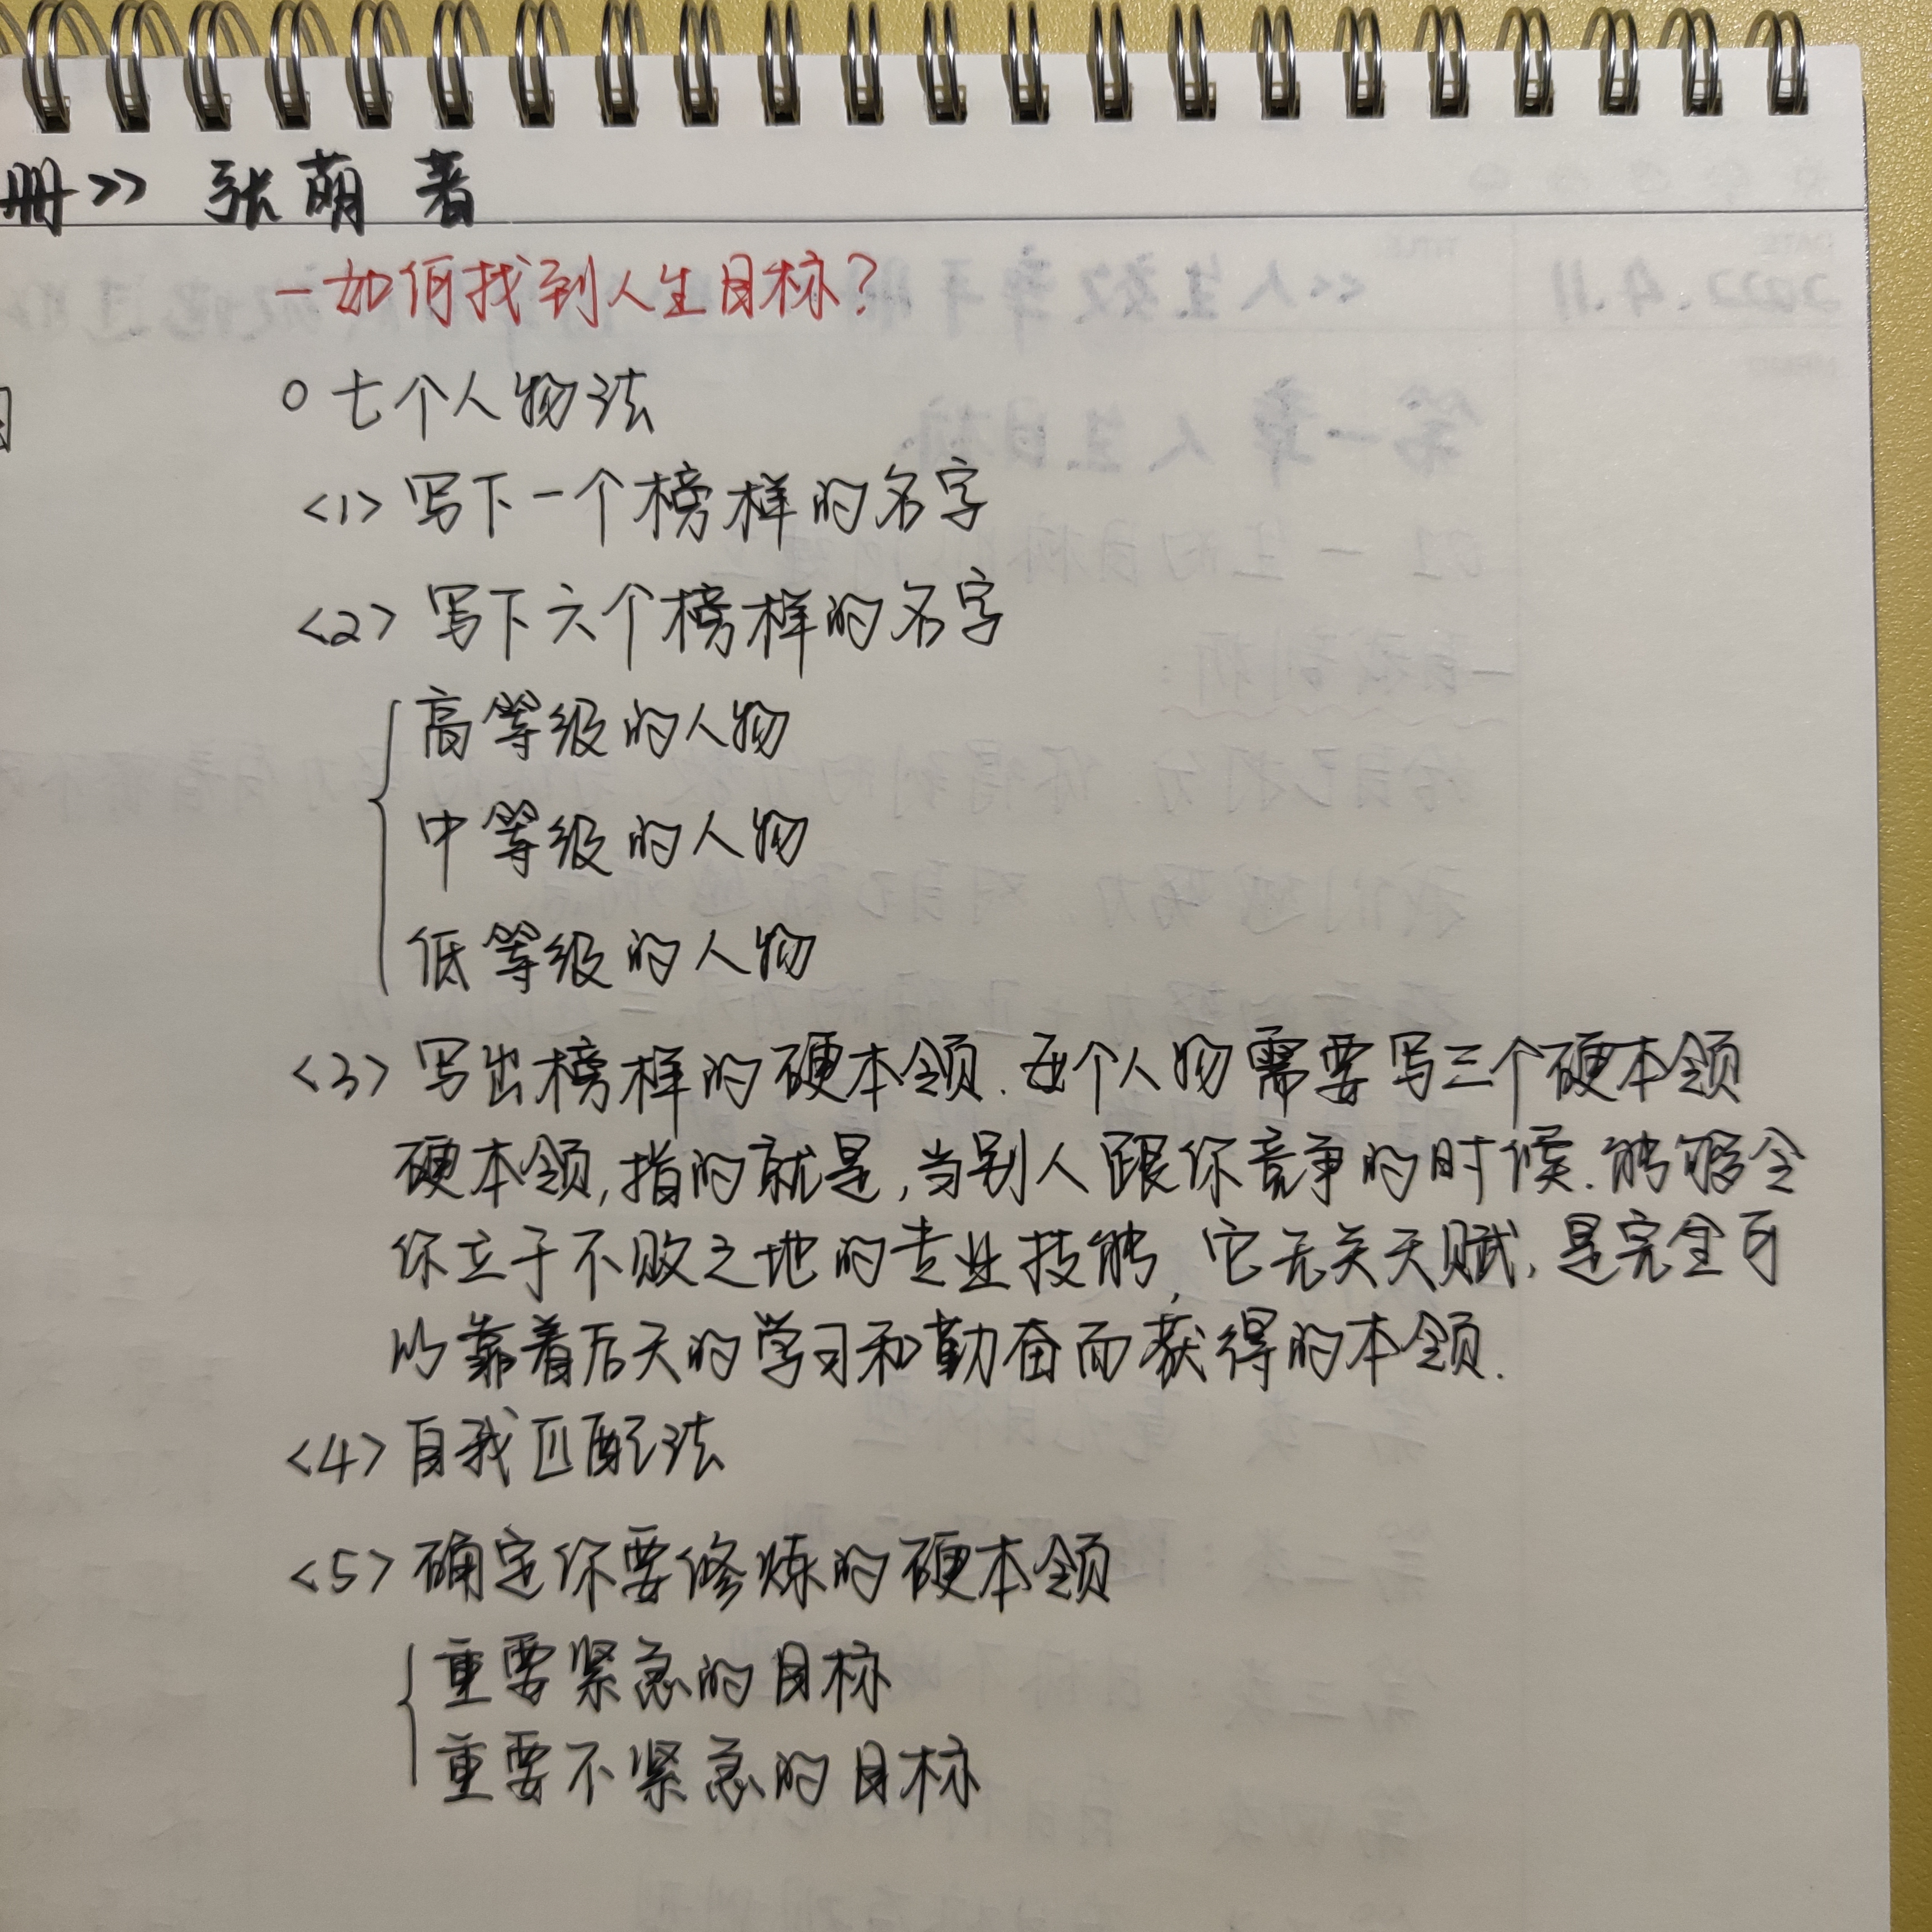 册>> 张萌 著
一如何找到人生目标?
○ 七个人物法
<1> 写下一个榜样的名字
<2> 写下六个榜样的名字
高等级的人物
中等级的人物
低等级的人物
<3> 写出榜样的硬本领.每个人物需要写三个硬本领
硬本领,指的就是,当别人跟你竞争的时候.能够令
你立于不败之地的专业技能,它无关天赋,是完全可
以靠着后天的学习和勤奋而获得的本领.
<4> 自我匹配法
<5> 确定你要修炼的硬本领
重要紧急的目标
重要不紧急的目标